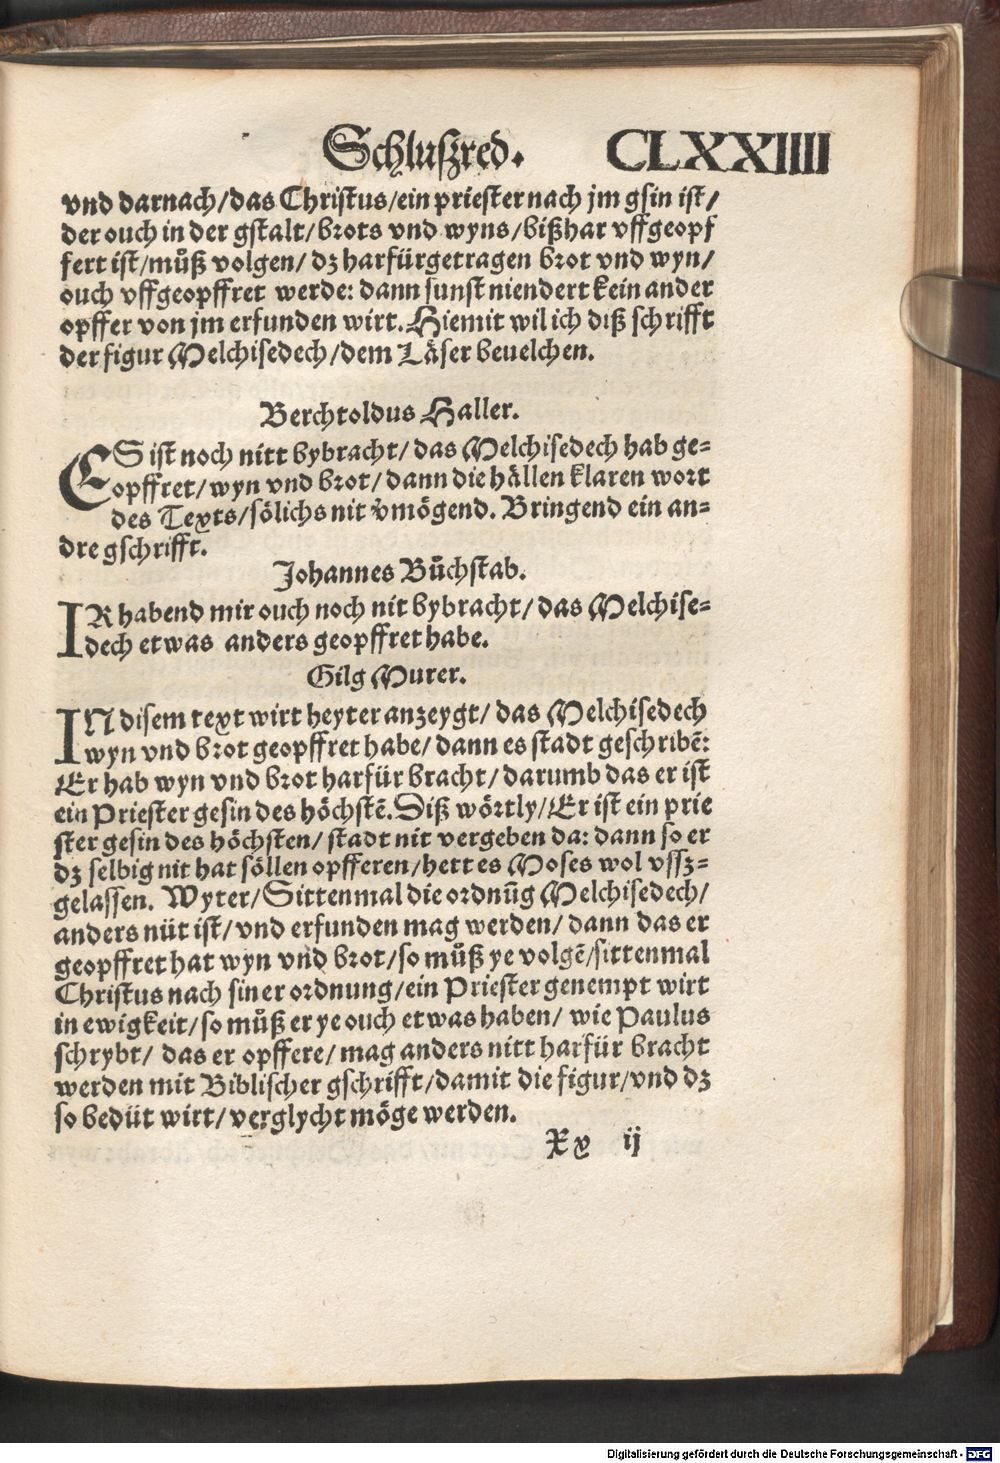 Schluſzred. CLXXIIII
vnd darnach/das Chriſtus/ein prieſter nach jm gſin iſt/
der ouch in der gſtalt/brots vnd wyns/bißhar vffgeopf
fert iſt/muͦß volgen/ dz harfürgetragen brot vnd wyn/
ouch vffgeopffret werde: dann ſunſt niendert kein ander
opffer von jm erfunden wirt. Hiemit wil ich diß ſchrifft
der figur Melchiſedech/dem Läſer beuelchen.
Berchtoldus Haller.
ES iſt noch nitt bybracht/ das Melchiſedech hab ge=
opffret/wyn vnd brot/dann die hällen klaren wort
des Texts/ſölichs nit v̓mögend. Bringend ein an=
dre gſchrifft.
Johannes Buͦchſtab.
IR habend mir ouch noch nit bybracht/das Melchiſe=
dech etwas anders geopffret habe.
Gilg Murer.
IN diſem text wirt heyter anzeygt/ das Melchiſedech
wyn vnd brot geopffret habe/ dann es ſtadt geſchribē:
Er hab wyn vnd brot harfür bracht/ darumb das er iſt
ein Prieſter geſin des höchſtē. Diß wörtly/Er iſt ein prie
ſter geſin des höchſten/ ſtadt nit vergeben da: dann ſo er
dz ſelbig nit hat ſöllen opfferen/hett es Moſes wol vſſz=
gelaſſen. Wyter/Sittenmal die ordnūg Melchiſedech/
anders nüt iſt/vnd erfunden mag werden/ dann das er
geopffret hat wyn vnd brot/ſo muͦß ye volgē/ſittenmal
Chriſtus nach ſiner ordnung/ein Prieſter genempt wirt
in ewigkeit/ſo muͦß er ye ouch etwas haben/ wie Paulus
ſchrybt/ das er opffere/mag anders nitt harfür bracht
werden mit Bibliſcher gſchrifft/damit die figur/vnd dz
ſo bedüt wirt/verglycht möge werden.
Xx ij
Digitalisierung gefördert durch die Deutsche Forschungsgemeinschaft - DFG